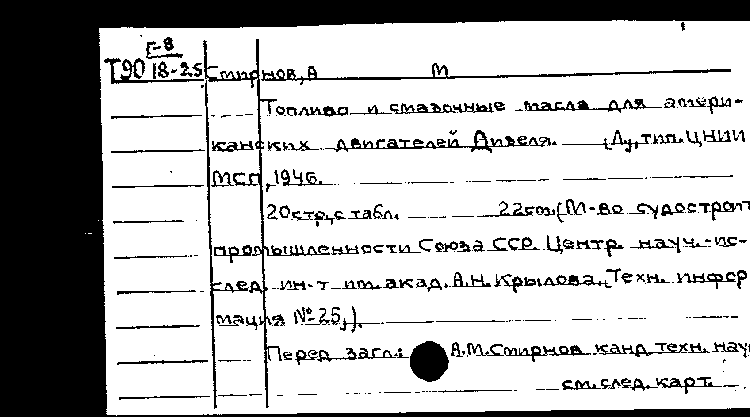 Г-8
Т90 18-25 Смирнов, А М
Топливо и смазочные масла для амери-
канских двигателей Дизеля. [Л., тип. ЦНИИ
МСП, 1946.
20 стр, с табл. 22 см. (М-во судостроит
промышленности Союза ССР. Центр. науч.-ис-
след. ин-т им. акад. А.Н. Крылова. [Техн. инфор
мация № 25,].
Перед загл.: А.М. Смирнов канд. техн. нау
см. след. карт.